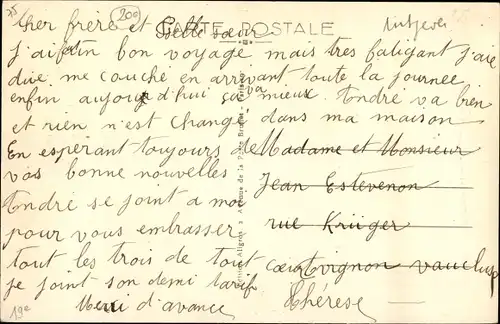 CARTE POSTALE
200
Cher frère et Belle sœur
j'ai fait un bon voyage mais tres fatigant j'ai
due me couché en arrivant toute la journee
enfin aujourd'hui ça va mieux André va bien
et rien n'est changé dans ma maison
En espérant toujours de
vos bonne nouvelles
André se joint a moi
pour vous embrasser
tout les trois de tout cœur
je joint son demi tarif
Merci d'avance Thérese
Madame et Monsieur
Jean Estevenon
rue Krüger
Avignon vaucluse
19e